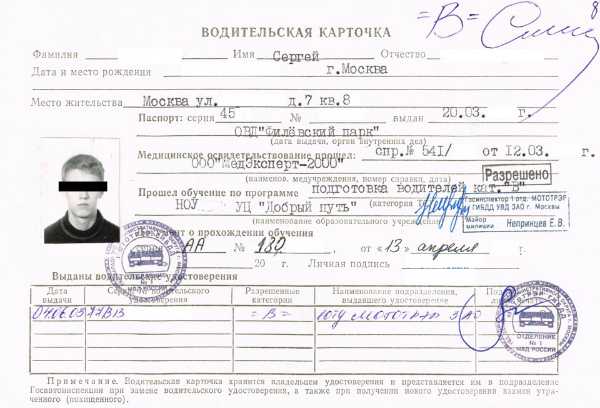 =В=
8
ВОДИТЕЛЬСКАЯ КАРТОЧКА
Фамилия Имя Сергей Отчество
Дата и место рождения г.Москва
Место жительства Москва ул. д.7 кв.8
Паспорт: серия 45 № выдан 20.03. г.
ОВД"Филёвский парк"
(дата выдачи, орган внутренних дел)
Медицинское освидетельствование прошел: спр.№ 541/ от 12.03. г.
ООО"МедЭксперт-2000"
(наименов. медучреждения, номер справки, дата)
Разрешено
Прошел обучение по программе подготовка водителей кат."В"
(категория ТС)
НОУ УЦ "Добрый путь"
(наименование образовательного учреждения)
Госинспектор 1 отд. МОТОТРЭР
ГИБДД УВД ЗАО г. Москвы
Майор милиции Непринцев Е.В.
Документ о прохождении обучения
серия АА № 132 от «13» апреля г.
20 г. Личная подпись
Выданы водительские удостоверения
Дата выдачи
Разрешенные категории
Наименование подразделения, выдавшего удостоверение
=В= ЗАО
ОТДЕЛЕНИЕ № 1 МВД РОССИИ
Примечание. Водительская карточка хранится владельцем удостоверения и представляется им в подразделение
Госавтоинспекции при замене водительского удостоверения, а также при получении нового удостоверения взамен утра-
ченного (похищенного).